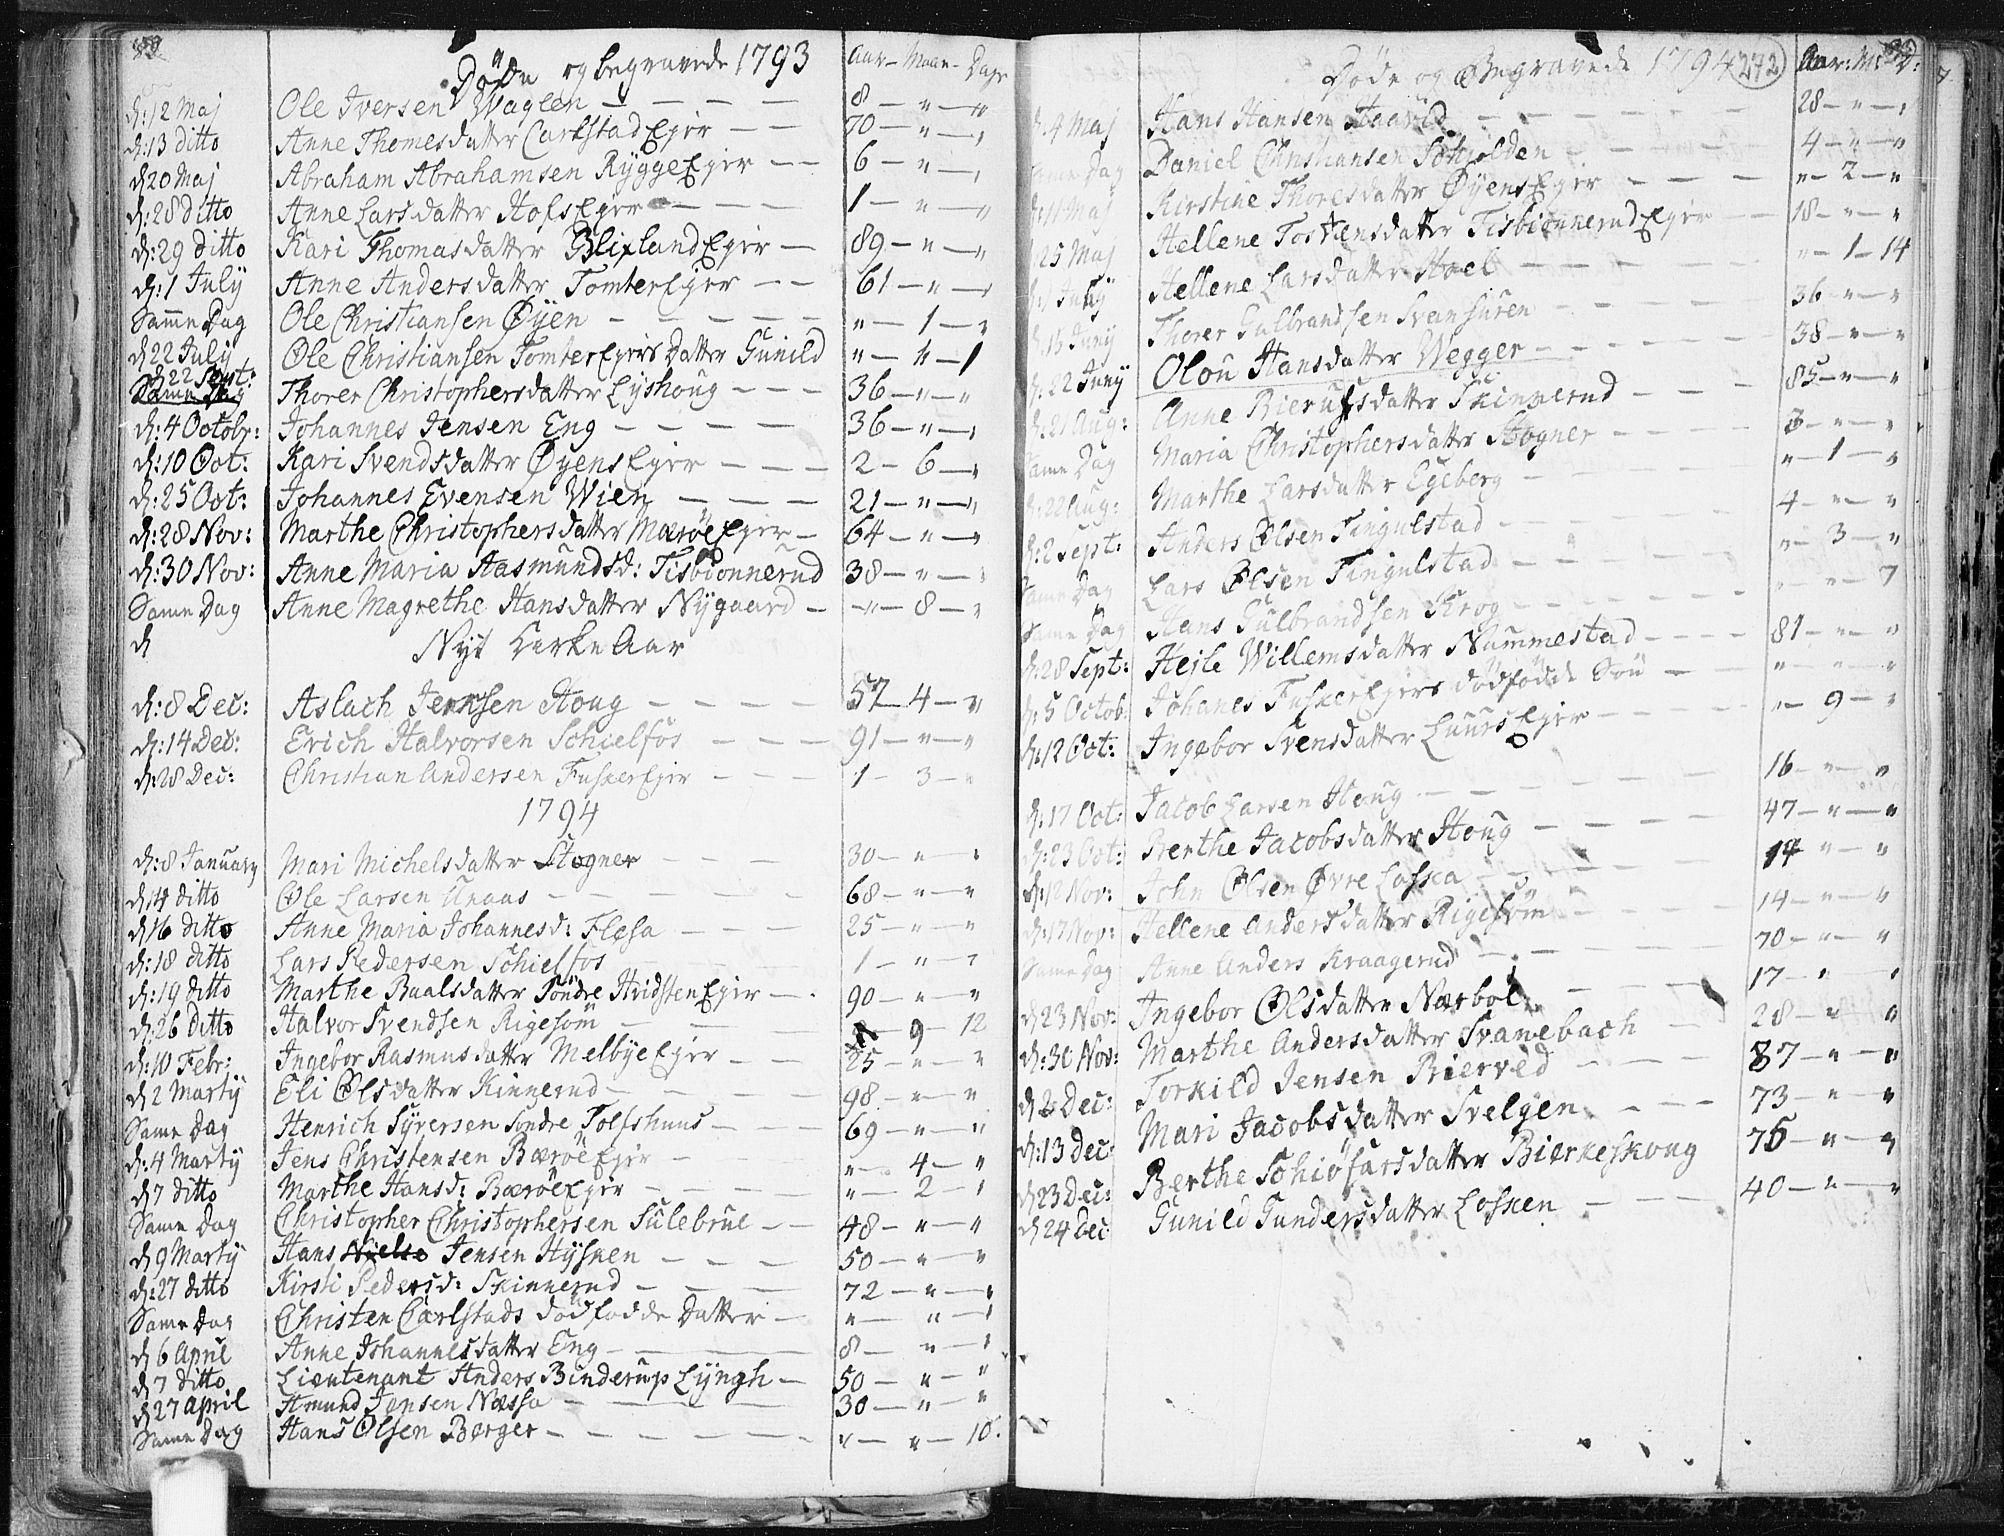 Döde og begravede 1793 Aar- Maan- Dage
d: 12 Maj Ole Iversen Waglen 8 — " — "
d: 13 ditto Anne Thomesdatter Carlstad Eger 70 — " — "
d 20 Maj Abraham Abrahamsen Rygge Eger 6 — " — "
d: 28 ditto Anne Larsdatter Hofs Eger 1 — " — "
d: 29 ditto Kari Thomasdatter Blixland Eger 89 — " — "
d: 1 July Anne Andersdatter Tomter Eger 61 — " — "
Samme Dag Ole Christiansen Øyen " — 1 — "
d 22 July Ole Christiansen Tomter Egers Datter Gunild " — " — 1
d 22 Sept: Thorer Christophersdatter Lyshoug 36 — " — "
d: 4 Octobr: Johannes Jensen Eng 36 — " — "
d: 10 Oct: Kari Svendsdatter Øyens Eger 2 — 6 — "
d: 25 Oct: Johannes Evensen Wien 21 — " — "
d: 28 Nov: Marthe Christophersdatter Mærøe Eger 64 — " — "
d: 30 Nov: Anne Maria Aasmundsd: Tisbionnerud 38 — " — "
Same Dag Anne Magrethe Hansdatter Nygaard " — 8 — "
d Nyt Kirke Aar
d: 8 Dec: Aslach Jensen Houg 57 — 4 — "
d: 14 Dec: Erich Halvorsen Schielfos 91 — " — "
d: 28 Dec: Christian Andersen Fusker Eger 1 — 3 — "
1794
d: 8 January Mari Michelsdatter Stogner 30 — " — "
d 14 ditto Ole Larsen Unaas 68 — " — "
d 16 ditto Anne Maria Johannesd: Flesa 25 — " — "
d: 18 ditto Lars Pedersen Schielfos 1 — " — "
d: 19 ditto Marthe Paalsdatter Söndre Hvidsten Eger 90 — " — "
d: 26 ditto Halvor Svendsen Rigesom 9 — 12
d: 10 Febr: Ingebor Rasmusdatter Melbye Eger 25 — " — "
d 2 Marty Eli Olsdatter Kinnerud 98 — " — "
Same Dag Henrich Syversen Söndre Tolfshuus 69 — " — "
d: 4 Marty Jens Christensen Bærøe Eger " — 4 — "
d 7 ditto Marthe Hansd: Bærøe Eger " — 2 — "
Same Dag Christopher Christophersen Sulebrue 48 — " — "
d 9 Marty Hans Nielse Jensen Hysken 50 — " — "
d: 27 ditto Kirsti Pedersd: Skinnerud 72 — " — "
Same Dag Christen Carlstads dödfödde Datter " — " — "
d 6 April Anne Johannesdatter Eng 8 — " — "
d 7 ditto Lieutenant Anders Binderup Lyngh 50 — " — "
d 27 April Amund Jensen Næssa 30 — " — "
Same Dag Hans Olsen Berger " — " — 10.
Døde og Begravede 1794 (272) Aar: M: D:
d: 4 Maj Hans Hansen Haavid 28 — " — "
Same Dag Daniel Christiansen Schjolden 4 — " — "
d: 11 Maj Kirstine Thoresdatter Øyens Eger " — 2 — "
25 Maj Hellene Tostensdatter Tisbionnerud Eger 18 — " — "
d: 1 Juny Hellene Larsdatter Hoel " — 1 — 14
d: 15 Juny Thorer Gulbrandsen Svensuren 36 — " — "
d: 22 Juny Olou Hansdatter Wegger 38 — " — "
d: 21 Aug: Anne Bierufsdatter Skinnerud 85 — " — "
Same Dag Maria Christophersdatter Stogner 3 — " — "
d: 22 Aug: Marthe Larsdatter Egeberg " — 1 — "
d: 2 Sept: Anders Olsen Tingulstad 4 — " — "
Same Dag Lars Olsen Tingulstad " — 3 — "
Same Dag Hans Gulbrandsen Krog " — " — 7
d: 28 Sept: Heile Willemsdatter Nummestad 81 — " — "
d: 5 Octob: Johanes Fusker Egers dödfödde Sön " — " — "
d: 12 Oct: Ingebor Svensdatter Luurs Eger " — 9 — "
d: 17 Oct: Jacob Larsen Houg 16 — " — "
d: 23 Oct: Berthe Jacobsdatter Houg 47 — " — "
d: 12 Nov: John Olsen Øvre Loska 14 — " — "
d: 17 Nov: Hellene Andersdatter Rigesom 14 — " — "
Same Dag Anne Anders Kraagerud 70 — " — "
d 23 Nov: Ingebor Olsdatter Nærbol 17 — " — "
d: 30 Nov: Marthe Andersdatter Svanebach 28 — " — "
d 2 Dec: Torkild Jensen Bierved 87 — " — "
d: 13 Dec: Mari Jacobsdatter Svelgen 73 — " — "
d 23 Dec: Berthe Schiöfarsdatter Bierkeskoug 75 — " — "
d 24 Dec Gunild Gundersdatter Losken 40 — " — "